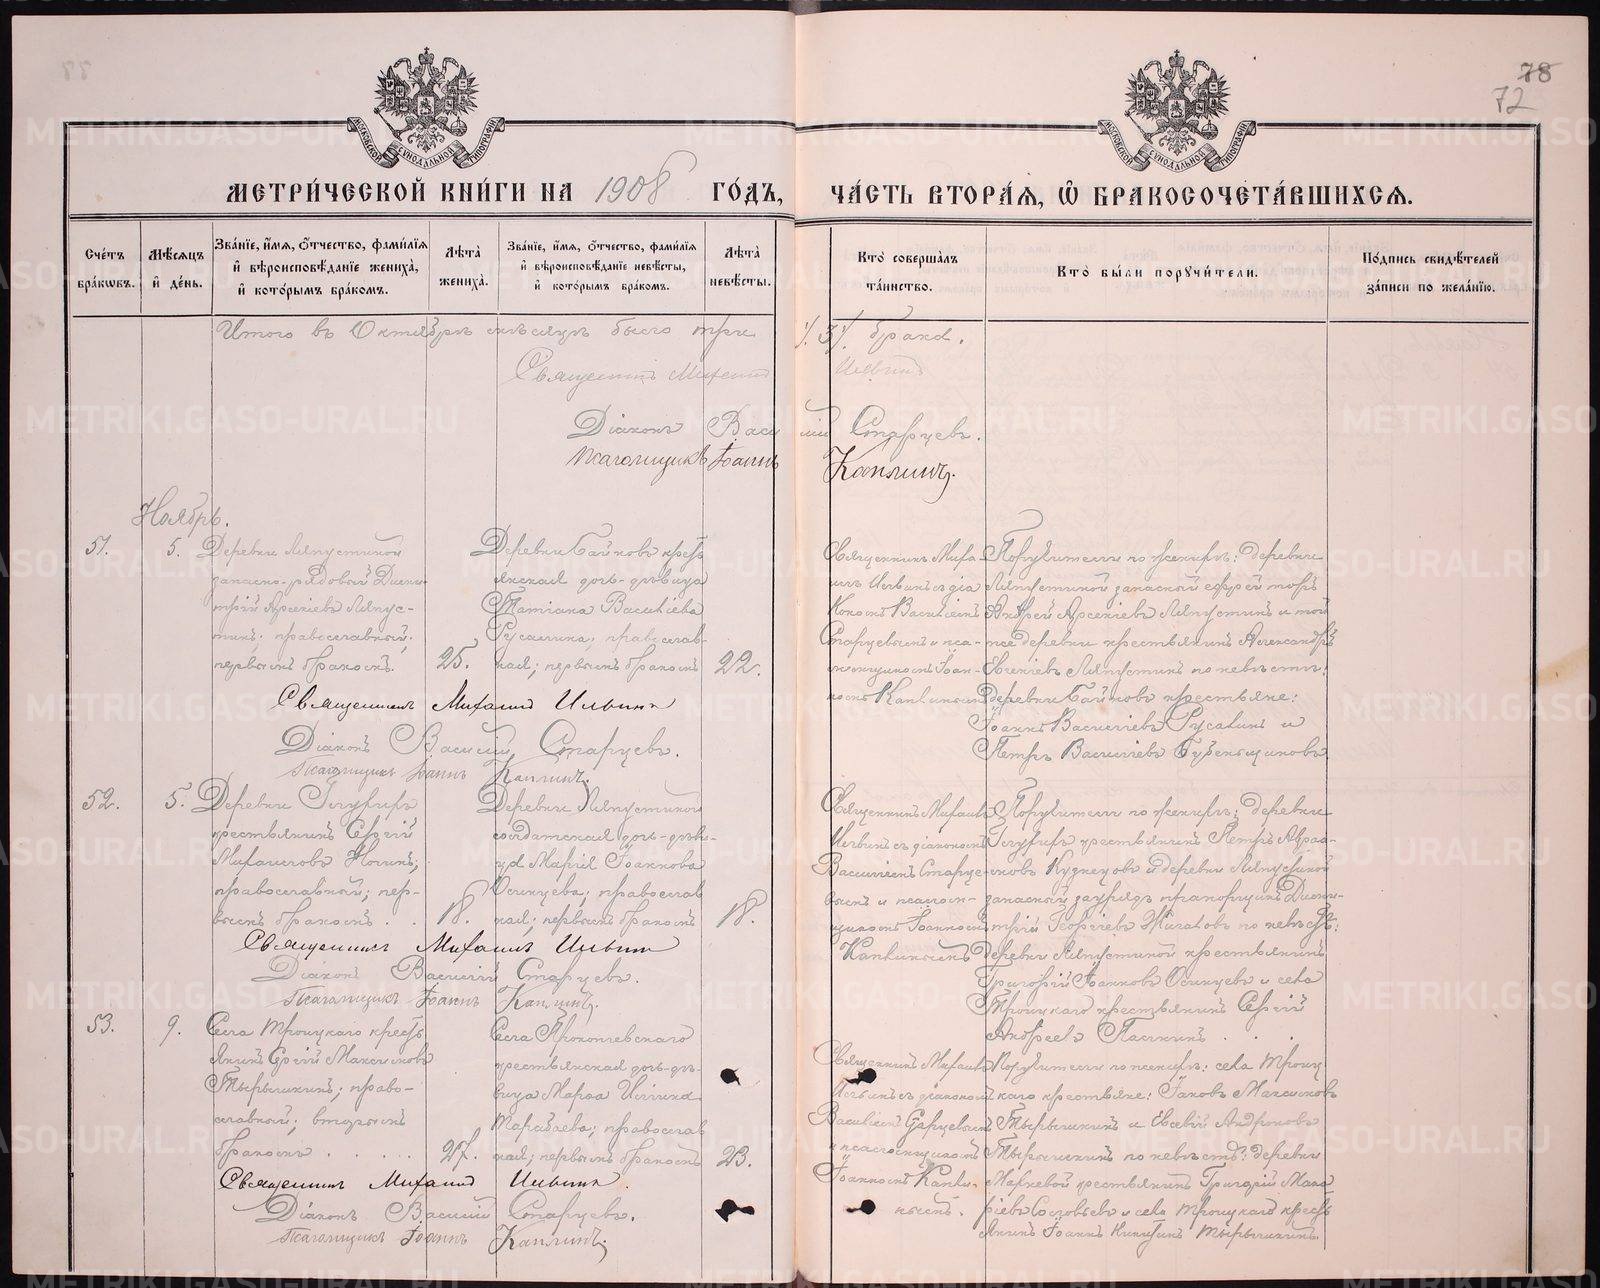 78
72
МОСКОВСКОЙ СѴНОДАЛЬНОЙ ТИПОГРАФІИ
МОСКОВСКОЙ СѴНОДАЛЬНОЙ ТИПОГРАФІИ
МЕТРИ́ЧЕСКОЙ КНИ́ГИ НА 1908 ГО́ДЪ,
ЧА́СТЬ ВТОРА́Я, Ѽ БРАКОСОЧЕТА́ВШИХСЯ.
Сче́тъ бра́кωвъ.
Мѣ́сяцъ и҆ де́нь.
Зва́нїе, и҆́мя, ѻ҆́тчество, фами́лїя и҆ вѣроисповѣ́данїе жениха̀, и҆ кото́рымъ бра́комъ.
Лѣта̀ жениха̀.
Зва́нїе, и҆́мя, ѻ҆́тчество, фами́лїя и҆ вѣроисповѣ́данїе невѣ́сты, и҆ кото́рымъ бра́комъ.
Лѣта̀ невѣ́сты.
Кто̀ соверша́лъ та́инство.
Кто̀ бы́ли порꙋчи́тели.
По́дпись свидѣ́телей за́писи по жела́нїю.
Итого въ Октябрѣ мѣсяцѣ было три /3/ брака.
Священникъ Михаилъ Ильинъ
Діаконъ Василій Старцевъ.
Псаломщикъ Іоаннъ Каплинъ.
Ноябрь.
51.
5.
Деревни Ляпустиной
запасно-рядовый Дими-
трій Арсеніевъ Ляпус-
тинъ; православный;
первымъ бракомъ.
25.
Деревни Байновъ кресть
янская дочь-дѣвица
Татіана Васильева
Русалина; православ-
ная; первымъ бракомъ
22.
Священникъ Миха-
илъ Ильинъ съ діа
кономъ Василіемъ
Старцевымъ и пса-
ломщикомъ Іоан-
номъ Каплинымъ
Поручители по женихѣ: деревни
Ляпустиной запасный ефрейторъ
Андрей Арсеніевъ Ляпустинъ и той
же деревни крестьянинъ Александръ
Ляпустинъ по невѣстѣ:
деревни Байновъ крестьяне:
Іоаннъ Васильевъ Русалинъ и
Петръ Васильевъ
Священникъ Михаилъ Ильинъ
Діаконъ Василій Старцевъ.
Псаломщикъ Іоаннъ Каплинъ.
52.
5.
Деревни
крестьянинъ Сергій
Михаиловъ
православный; пер-
вымъ бракомъ . .
18.
Деревни Ляпустиной
солдатская дочь-дѣви-
ца Марія Іоаннова
Осинцева; православ
ная; первымъ бракомъ
18.
Священникъ Михаилъ
Ильинъ съ діакономъ
Василіемъ Старце-
вымъ и псалом-
щикомъ Іоанномъ
Каплинымъ
Поручители по женихѣ: деревни
крестьянинъ Петръ Авраа-
мовъ Кузнецовъ и деревни Ляпустиной
запасный Дими-
трій Георгіевъ по невѣстѣ:
деревни Ляпустиной крестьянинъ
Григорій Іоанновъ Осинцевъ и села
Троицкаго крестьянинъ Сергій
Андреевъ
Священникъ Михаилъ Ильинъ
Діаконъ Василій Старцевъ.
Псаломщикъ Іоаннъ Каплинъ.
53.
9.
Села Троицкаго кресть
янинъ Сергій Максимовъ
Тырышкинъ; право-
славный; вторымъ
бракомъ . . . . .
27.
Села Прокопьевскаго
крестьянская дочь-дѣ-
вица Марѳа Ильина
православ
ная; первымъ бракомъ
23.
Священникъ Михаилъ
Ильинъ съ діакономъ
Василіемъ Старцевымъ
и псаломщикомъ
Іоанномъ Капли-
нымъ.
Поручители по женихѣ: села Троиц
каго крестьяне: Іаковъ Максимовъ
Тырышкинъ и Евсевій Андроновъ
Тырышкинъ по невѣстѣ: деревни
крестьянинъ Григорій Мака
ріевъ Соловьевъ и села Троицкаго кресть
янинъ Іоаннъ Никитинъ Тырышкинъ
Священникъ Михаилъ Ильинъ.
Діаконъ Василій Старцевъ.
Псаломщикъ Іоаннъ Каплинъ.
METRIKI.GASO-URAL.RU